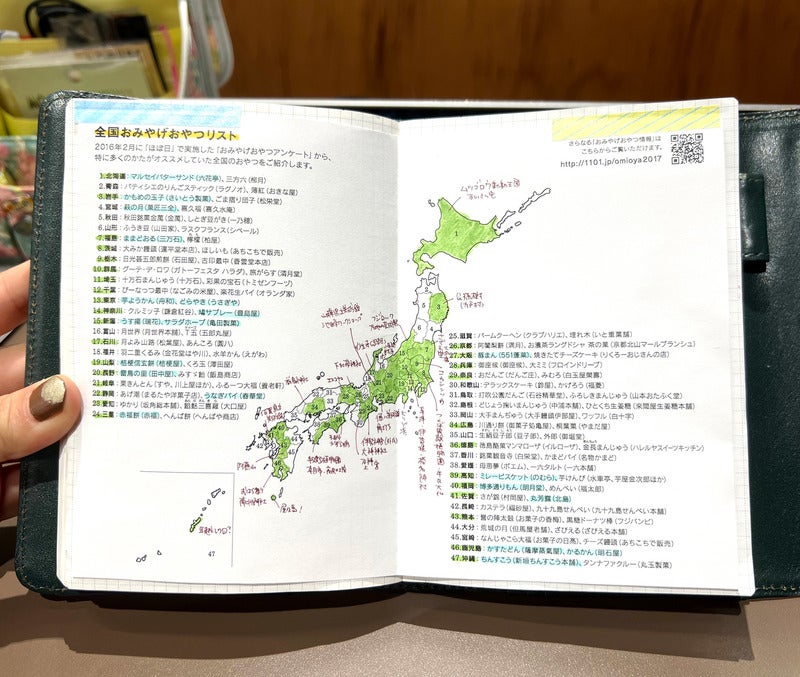 全国おみやげおやつリスト
2016年2月に「ほぼ日」で実施した「おみやげおやつアンケート」から、
特に多くのかたがオススメしていた全国のおやつをご紹介します。
1. 北海道：マルセイバターサンド(六花亭)、三方六(柳月)
2. 青森：パティシエのりんごスティック(ラグノオ)、薄紅(おきな屋)
3. 岩手：かもめの玉子(さいとう製菓)、ごま摺り団子(松栄堂)
4. 宮城：萩の月(菓匠三全)、喜久福(喜久水庵)
5. 秋田：秋田銘菓金萬(金萬)、しとぎ豆がき(一乃穂)
6. 山形：ふうき豆(山田家)、ラスクフランス(シベール)
7. 福島：ままどおる(三万石)、檸檬(柏屋)
8. 茨城：大みか饅頭(運平堂本店)、ほしいも(あちこちで販売)
9. 栃木：日光甚五郎煎餅(石田屋)、古印最中(香雲堂本店)
10. 群馬：グーテ・デ・ロワ(ガトーフェスタ ハラダ)、旅がらす(清月堂)
11. 埼玉：十万石まんじゅう(十万石)、彩果の宝石(トミゼンフーヅ)
12. 千葉：ぴーなっつ最中(なごみの米屋)、楽花生パイ(オランダ家)
13. 東京：芋ようかん(舟和)、どらやき(うさぎや)
14. 神奈川：クルミッ子(鎌倉紅谷)、鳩サブレー(豊島屋)
15. 新潟：うす揚(瑞花)、サラダホープ(亀田製菓)
16. 富山：月世界(月世界本舗)、T五(五郎丸屋)
17. 石川：月よみ山路(松葉屋)、あんころ(圓八)
18. 福井：羽二重くるみ(金花堂はや川)、水羊かん(えがわ)
19. 山梨：桔梗信玄餅(桔梗屋)、くろ玉(澤田屋)
20. 長野：雷鳥の里(田中屋)、みすゞ飴(飯島商店)
21. 岐阜：栗きんとん(すや、川上屋ほか)、ふる一つ大福(養老軒)
22. 静岡：あげ潮(まるたや洋菓子店)、うなぎパイ(春華堂)
23. 愛知：ゆかり(坂角総本舖)、餡麩三喜羅(大口屋)
24. 三重：赤福餅(赤福)、へんば餅(へんばや商店)
さらなる「おみやげおやつ情報」は
こちらからご覧いただけます。
http://1101.com/omioya2017
25. 滋賀：バームクーヘン(クラブハリエ)、埋れ木(いと重菓舗)
26. 京都：阿闍梨餅(満月)、お濃茶ラングドシャ 茶の菓(京都北山マールブランシュ)
27. 大阪：豚まん(551蓬莱)、焼きたてチーズケーキ(りくろーおじさんの店)
28. 兵庫：御座候(御座候)、大ミミ(フロインドリーブ)
29. 奈良：おだんご(だんご庄)、みむろ(白玉屋榮壽)
30. 和歌山：デラックスケーキ(鈴屋)、かげろう(福菱)
31. 鳥取：打吹公園だんご(石谷精華堂)、ふろしきまんじゅう(山本おたふく堂)
32. 島根：どじょう掬いまんじゅう(中浦本舗)、ひとくち生姜糖(來間屋生姜糖本舗)
33. 岡山：大手まんぢゅう(大手饅頭伊部屋)、ワッフル(白十字)
34. 広島：川通り餅(御菓子処亀屋)、桐葉菓(やまだ屋)
35. 山口：生絹豆子郎(豆子郎)、外郎(御堀堂)
36. 徳島：徳島酪菓マンマローザ(イルローザ)、金長まんじゅう(ハレルヤスイーツキッチン)
37. 香川：銘菓観音寺(白栄堂)、かまどパイ(名物かまど)
38. 愛媛：母恵夢(ポエム)、一六タルト(一六本舗)
39. 高知：ミレービスケット(のむら)、芋けんぴ(水車亭、芋屋金次郎ほか)
40. 福岡：博多通りもん(明月堂)、めんべい(福太郎)
41. 佐賀：さが錦(村岡屋)、丸芳露(北島)
42. 長崎：カステラ(福砂屋)、九十九島せんぺい(九十九島せんぺい本舗)
43. 熊本：誉の陣太鼓(お菓子の香梅)、黒糖ドーナツ棒(フジバンビ)
44. 大分：荒城の月(但馬屋老舗)、ざびえる(ざびえる本舗)
45. 宮崎：なんじゃこら大福(お菓子の日高)、チーズ饅頭(あちこちで販売)
46. 鹿児島：かすたどん(薩摩蒸氣屋)、かるかん(明石屋)
47. 沖縄：ちんすこう(新垣ちんすこう本舗)、タンナファクルー(丸玉製菓)
1
2
3
47